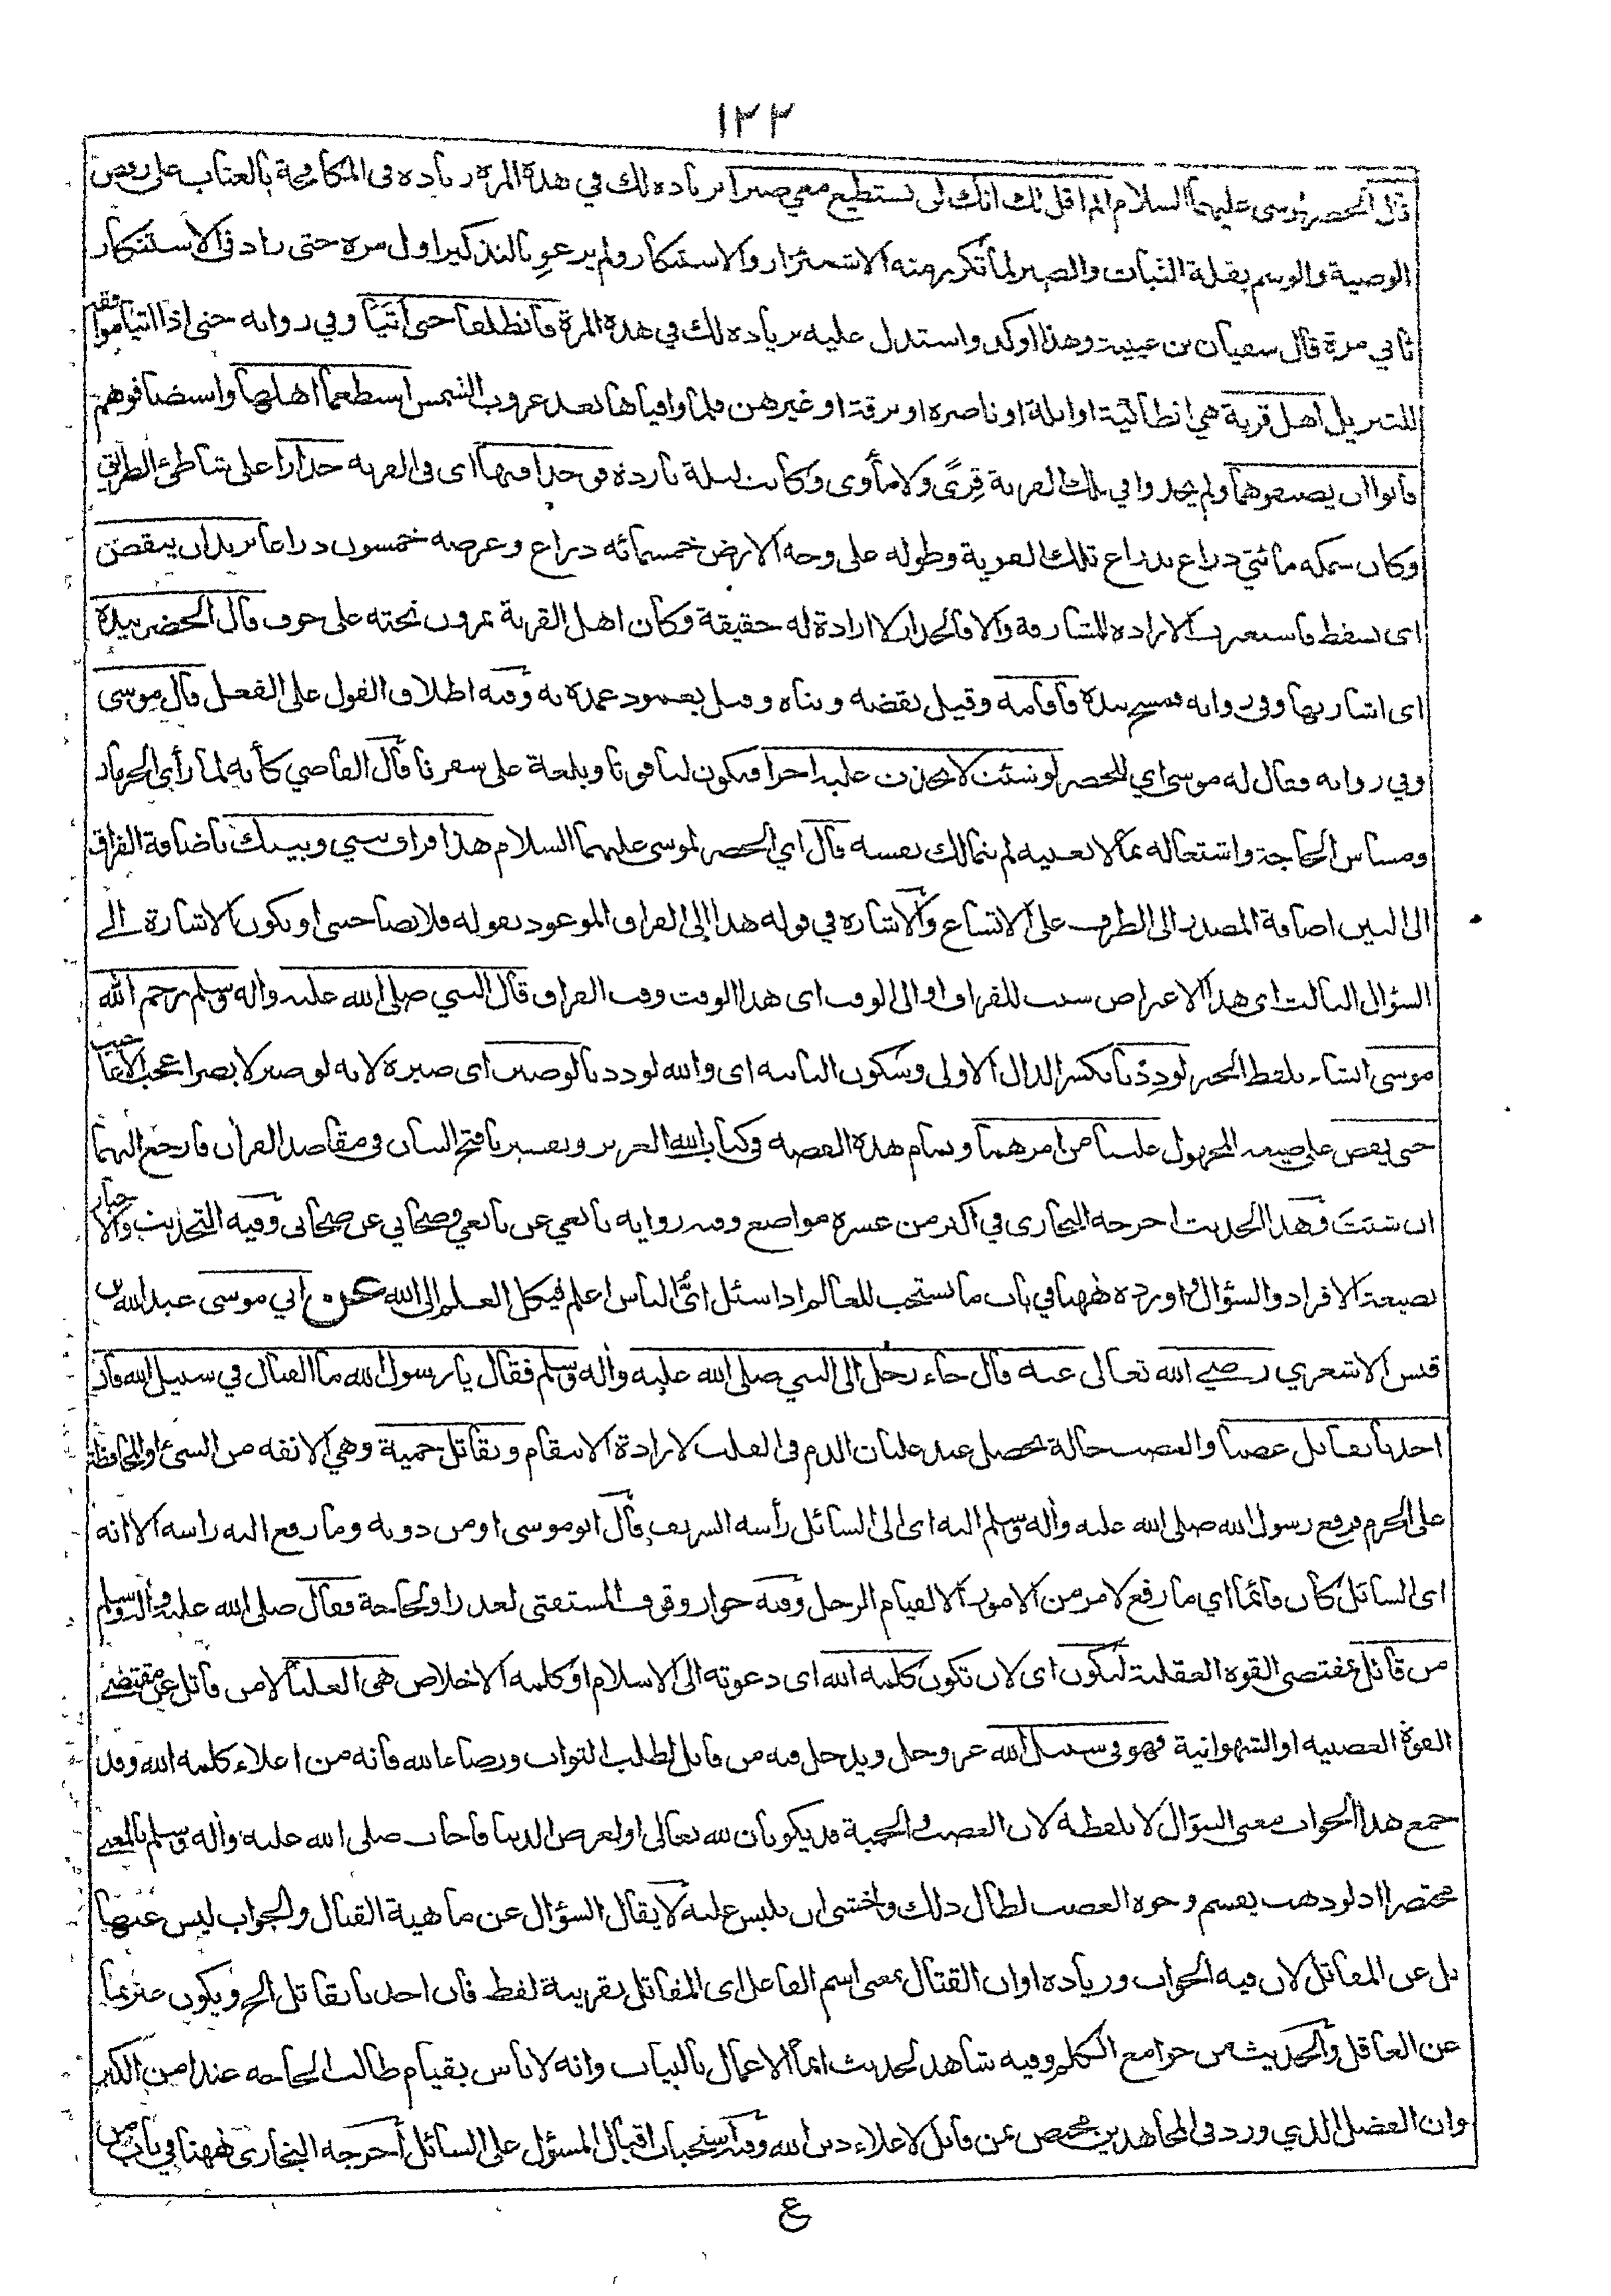 ١٢٢
قال الخضر لموسى عليهما السلام الم اقل لك انك لن تستطيع معي صبرا بزيادة لك في هذه المرة زيادة في المكافحة بالعتاب على رفض
الوصية والوسم بقلة الثبات والصبر لما تكرر منه الاشمئزاز والاستنكار ولم يرعو بالتذكير اول مرة حتى زاد في الاستنكار
ثاني مرة قال سفيان بن عيينة وهذا اوكد واستدل عليه بزيادة لك في هذه المرة فانطلقا حتى أتَيَا وفي رواية حتى اذا اتيا موافقة
للتنزيل اهل قرية هي انطاكية او ايلة او ناصرة او برقة او غيرهن فلما وافياها بعد غروب الشمس استطعما اهلها واستضافوهم
فابوا ان يضيفوهما ولم يجدوا في تلك القرية قِرًى ولا مأوى وكانت ليلة باردة فوجدا فيها اى في القرية جدارا على شاطئ الطريق
وكان سمكه مائتي ذراع بذراع تلك القرية وطوله على وجه الارض خمسمائة ذراع وعرضه خمسون ذراعا يريد ان ينقض
اى يسقط فاستعيرت الارادة للمشارفة والا فالجدار لا ارادة له حقيقة وكان اهل القرية يمرون تحته على خوف قال الخضر بيده
اى اشار بها وفي رواية فمسح بيده فاقامه وقيل نقضه وبناه وقيل بعمود عمده به وفيه اطلاق القول على الفعل قال موسى
وفي رواية فقال له موسى اي للخضر لو شئت لاتخذت عليه اجرا فيكون لنا قوتا وبلغة على سفرنا قال القاضي كأنه لما رأى الحرمان
ومساس الحاجة واشتغاله بما لا يعنيه لم يتمالك نفسه قال اي الخضر لموسى عليهما السلام هذا فراق بيني وبينك باضافة الفراق
الى البين اضافة المصدر الى الظرف على الاتساع والاشارة في قوله هذا إلى الفراق الموعود بقوله فلا تصاحبني او يكون الاشارة الى
السؤال الثالث اى هذا الاعتراض سبب للفراق او الى الوقت اى هذا الوقت وقت الفراق قال النبي صلى الله عليه وآله وسلم يرحم الله
موسى انشاء بلفظ الخبر لودِدْنا بكسر الدال الاولى وسكون الثانية اى والله لوددنا لو صبر اى صبره لانه لو صبر لابصر اعجب الاعاجيب
حتى يقص على صيغة المجهول علينا من امرهما وتمام هذه القصة في كتاب الله العزيز وتفسيرنا فتح البيان في مقاصد القرآن فارجع اليهما
ان شئتَ وهذا الحديث اخرجه البخارى في اكثر من عشرة مواضع وفيه رواية تابعي عن تابعي وصحابي عن صحابى وفيه التحديث والاخبار
بصيغة الافراد والسؤال واورده ههنا في باب ما يستحب للعالم اذا سئل ايُّ الناس اعلم فيكل العلم الى الله عن ابي موسى عبد الله بن
قيس الاشعري رضي الله تعالى عنه قال جاء رجل الى النبي صلى الله عليه وآله وسلم فقال يا رسول الله ما القتال في سبيل الله فان
احدنا يقاتل غضبا والغضب حالة تحصل عند غليان الدم فى القلب لارادة الانتقام ويقاتل حمية وهي الانفة من الشئ او المحافظة
على الحرم فرفع رسول الله صلى الله عليه وآله وسلم اليه اى الى السائل رأسه الشريف قال ابو موسى او من دونه وما رفع اليه راسه الا انه
اى السائل كان قائما اي ما رفع لامر من الامور الا لقيام الرجل وفيه جواز وقوف المستفتى لعذر او لحاجة فقال صلى الله عليه وآله وسلم
من قاتل بمقتضى القوة العقلية لتكون اى لان تكون كلمة الله اى دعوته الى الاسلام او كلمة الاخلاص هى العليا لا من قاتل عن مقتضى
القوة الغضبية او الشهوانية فهو في سبيل الله عز وجل ويدخل فيه من قاتل لطلب الثواب ورضاء الله فانه من اعلاء كلمة الله وقد
جمع هذا الجواب معنى السؤال لا بلفظه لان الغضب والحمية قد يكونان لله تعالى او لغرض الدنيا فاجاب صلى الله عليه وآله وسلم بالمعنى
مختصرا اذ لو ذهب يقسم وجوه الغضب لطال ذلك واخشى ان يلبس عليه لا يقال السؤال عن ماهية القتال والجواب ليس عنها
بل عن المقاتل لان فيه الجواب وزيادة او ان القتال بمعنى اسم الفاعل اى المقاتل بقرينة لفظ فان احدنا يقاتل الخ ويكون عبر بما
عن العاقل والحديث من جوامع الكلم وفيه شاهد لحديث انما الاعمال بالنيات وانه لا باس بقيام طالب الحاجة عند امن الكبر
وان الفضل الذي ورد فى المجاهدين مختص بمن قاتل لاعلاء دين الله وفيه استحباب اقبال المسئول على السائل أخرجه البخارى ههنا في باب من
ع